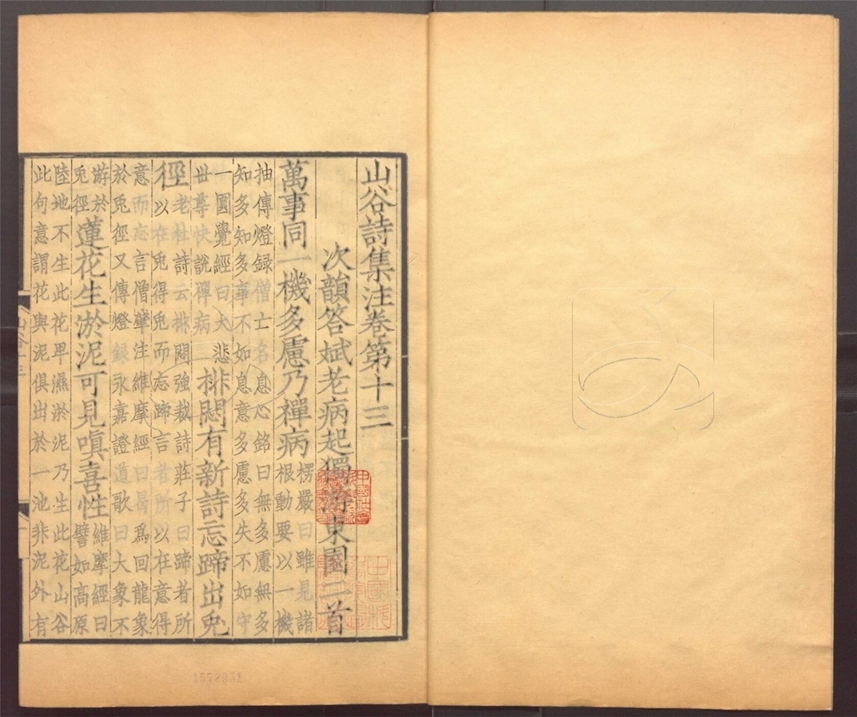 山谷詩集注卷第十三
次韻答斌老病起獨游東園二首
萬事同一機多慮乃禪病
楞嚴曰雖見諸
根動要以一機
抽傳燈録僧亡名息心銘曰無多慮無多
知多知多事不如息意多慮多失不如守
一圓覺經曰大悲
世尊快說禪病
排悶有新詩忘蹄出兔
徑
老杜詩云排悶強裁詩莊子曰蹄者所
以在兔得兔而忘蹄言者所以在意得
意而忘言僧肇注維摩經曰曷爲回龍象
於兔徑又傳燈録永嘉證道歌曰大象不
游於
兔徑
蓮花生淤泥可見嗔喜性
維摩經曰
譬如高原
陸地不生此花卑濕淤泥乃生此花山谷
此句意謂花與泥俱出於一池非泥外有